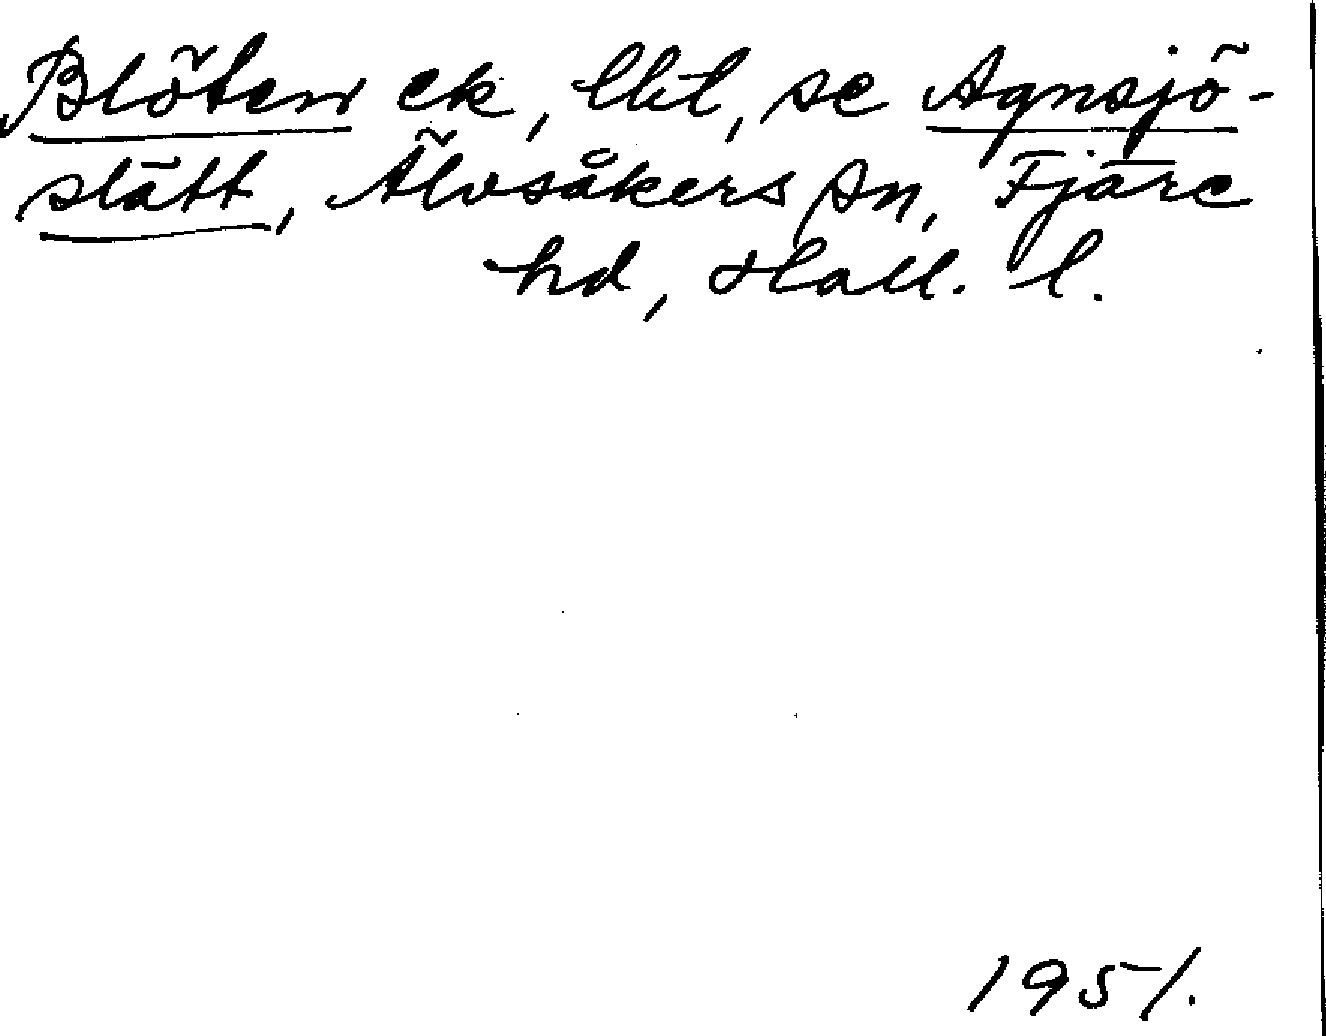 Blöten ek, lht, se Agnsjö-
slätt, Älvsåkers sn, Fjäre
hd, Hall. l.
1951.